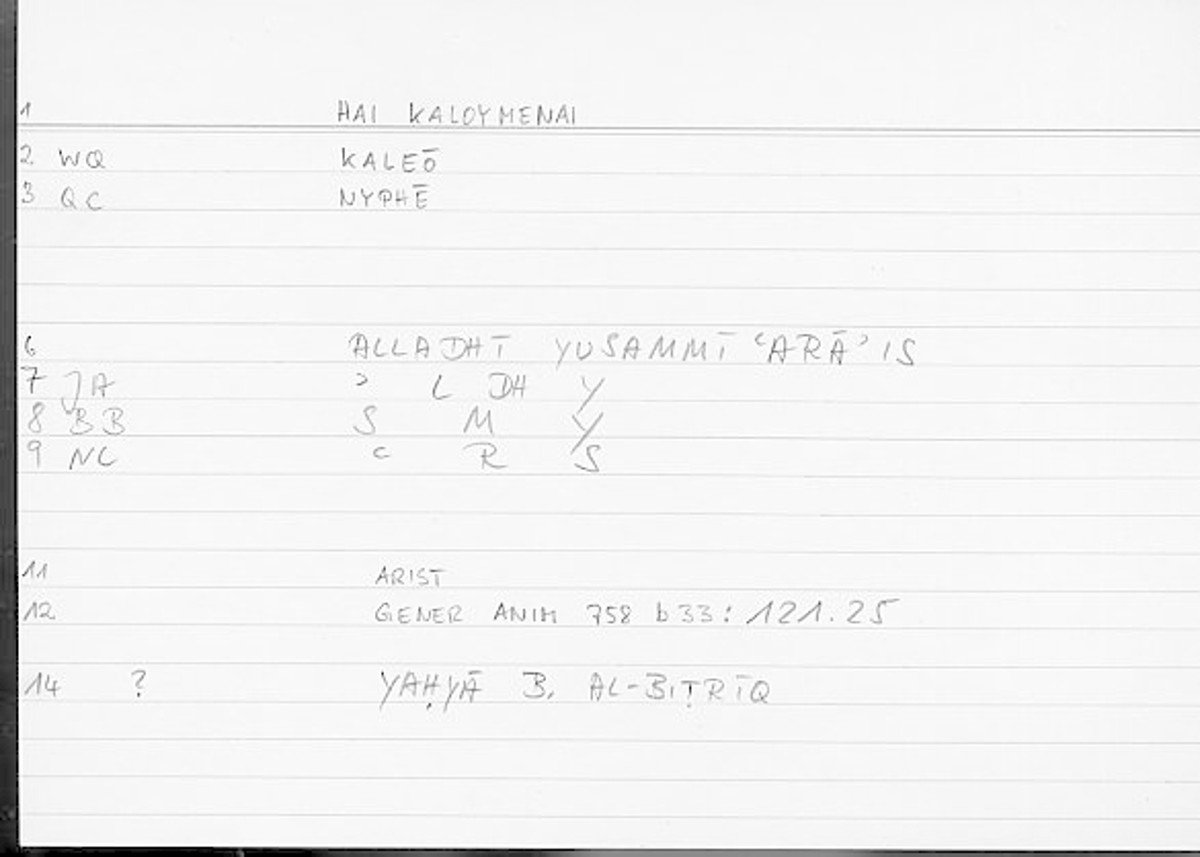 1 HAI KALOYMENAI
2 WQ KALEŌ
3 QC NYPHĒ
6 ALLADHĪ YUSAMMĪ ʿARĀʾIS
7 JA ʾ L DH Y
8 BB S M Y
9 NC ʿ R S
11 ARIST
12 GENER ANIM 758 b33: 121.25
14 ? YAḤYĀ B. AL-BIṬRĪQ